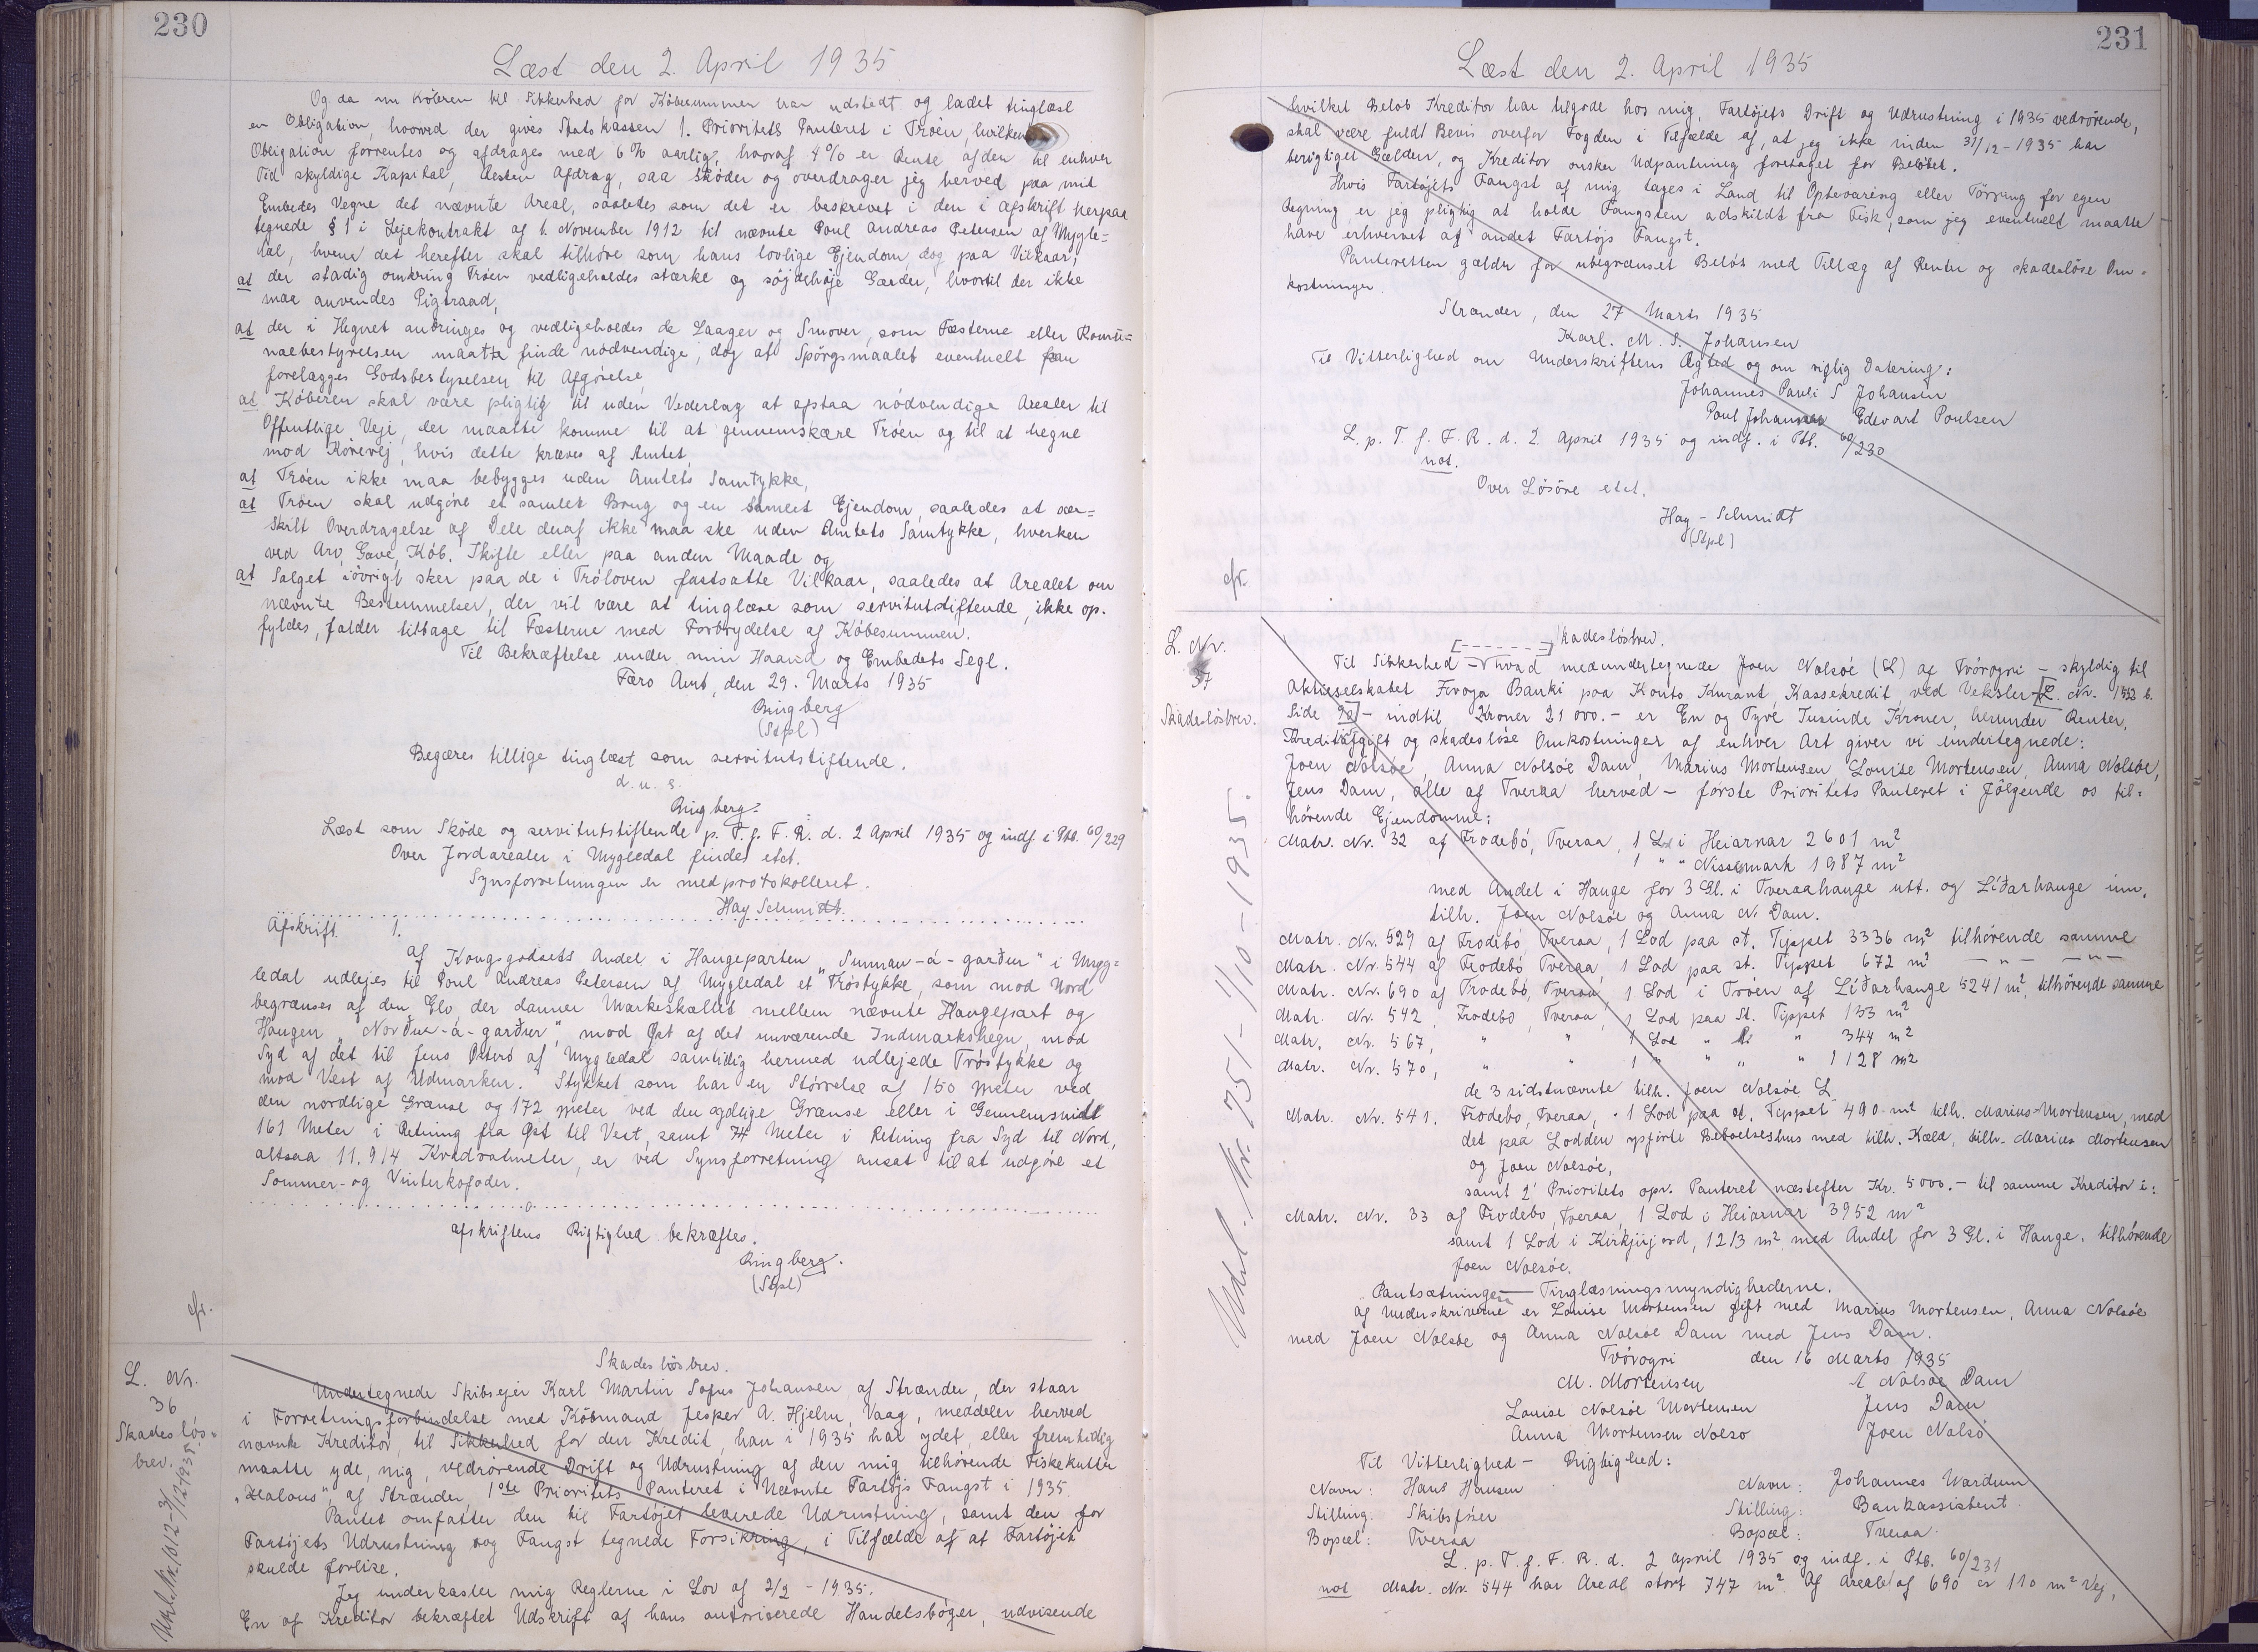 230
Læst den 2. April 1935
Og da nu Køberen til Sikkerhed for Købesummen har udstedt og ladet tinglæst
en Obligation, hvorved der gives Statskassen 1. Prioritets Panteret i Trøen, hvilken
Obligation forrentes og afdrages med 6 % aarlig, hvoraf 4 % er Rente af den til enhver
Tid skyldige Kapital, Resten Afdrag, saa skøder og overdrager jeg herved paa mit
Embedes Vegne det nævnte Areal, saaledes som det er beskrevet i den i Afskrift herpaa
tegnede § 1 i Lejekontrakt af 1. November 1912 til nævnte Poul Andreas Petersen af Mygle=
dal, hvem det herefter skal tilhøre som hans lovlige Ejendom, dog paa Vilkaar,
at der stadig omkring Trøen vedligeholdes stærke og søjdehøje Gærder, hvortil der ikke
maa anvendes Pigtraad,
at der i Hegnet anbringes og vedligeholdes de Laager og Smover, som Fæsterne eller Kommu=
nalbestyrelsen maatte finde nødvendige, dog at Spørgsmaalet eventuelt kan
forelægges Godsbestyrelsen til Afgørelse,
at Køberen skal være pligtig til uden Vederlag at afstaa nødvendige Arealer til
Offentlige Veje, der maatte komme til at gennemskære Trøen og til at hegne
mod Kørevej, hvis dette kræves af Amtet,
at Trøen ikke maa bebygges uden Amtets Samtykke,
at Trøen skal udgøre et samlet Brug og en samlet Ejendom, saaledes at sær=
skilt Overdragelse af Dele deraf ikke maa ske uden Amtets Samtykke, hverken
ved Arv, Gave, Køb, Skifte eller paa anden Maade og
at Salget iøvrigt sker paa de i Trøloven fastsatte Vilkaar, saaledes at Arealet om
nævnte Bestemmelser, der vil være at tinglæse som servitutstiftende, ikke op.
fyldes, falder tilbage til Fæsterne med Fortrydelse af Købesummen.
Til Bekræftelse under min Haand og Embedets Segl.
Færo Amt, den 29. Marts 1935
Ringberg
(Stpl)
Begæres tillige tinglæst som servitutstiftende.
d. u. s.
Ringberg.
Læst som Skøde og servitutstiftende p. T. f. F. R. d. 2 April 1935 og indf. i Ptb. 60/229
Over Jordarealer i Mygledal findes etct.
Synsforretningen er medprotokolleret.
Hay Schmidt.
Afskrift. 1.
Af Kongsgodsets Andel i Haugeparten "Sunnan-á-garður" i Mygg=
ledal udlejes til Poul Andreas Petersen af Mygledal et Trøstykke, som mod Nord
begrænses af den Elv, der danner Markeskællet mellem nævnte Haugepart og
Haugen "Norðan-á-garður", mod Øst af det nuværende Indmarkshegn, mod
Syd af det til Jens Østerø af Mygledal samtidig hermed udlejede Trøstykke og
mod Vest af Udmarken. Stykket som har en Størrelse af 150 Meter ved
den nordlige Grænse og 172 Meter ved den sydlige Grænse eller i Gennemsnit
161 Meter i Retning fra Øst til Vest, samt 74 Meter i Retning fra Syd til Nord,
altsaa 11.914 Kvadratmeter, er ved Synsforretning ansat til at udgøre et
Sommer- og Vinterkofoder.
Afskriftens Rigtighed bekræftes.
Ringberg.
(Stpl)
cfr.
L. Nr.
36
Skadesløs=
brev.
Skadesløsbrev.
Undertegnede Skibsejer Karl Martin Sofus Johansen af Strænder, der staar
i Forretningsforbindelse med Købmand Jesper A. Hjelm, Vaag, meddeler herved
nævnte Kreditor, til Sikkerhed for den Kredit, han i 1935 har ydet, eller fremtidig
maatte yde, mig, vedrørende Drift og Udrustning af den mig tilhørende Fiskekutter
af Strænder, 1ste Prioritets Panteret i Nævnte Fartøjs Fangst i 1935.
Pantet omfatter den til Fartøjet leverede Udrustning, samt den for
Fartøjets Udrustning og Fangst tegnede Forsikring, i Tilfælde af at Fartøjet
skulde forlise.
Jeg underkaster mig Reglerne i Lov af 2/2 - 1935.
En af Kreditor bekræftet Udskrift af hans autoriserede Handelsbøger, udvisende
231
Læst den 2. April 1935
hvilket Beløb Kreditor har tilgode hos mig, Fartøjets Drift og Udrustning i 1935 vedrørende,
skal være fuldt Bevis overfor Fogden i Tilfælde af, at jeg ikke inden 31/12-1935 har
berigtiget Gælden, og Kreditor ønsker Udpantning foretaget for Beløbet.
Hvis Fartøjets Fangst af mig tages i Land til Opbevaring eller Tørring for egen
Regning er jeg pligtig at holde Fangsten adskildt fra Fisk, som jeg eventuelt maatte
have erhvervet af andet Fartøjs Fangst.
Panteretten gælder for ubegrænset Beløb med Tillæg af Renter og skadesløse Om=
kostninger.
Strænder, den 27 Marts 1935
Karl. M. S. Johansen
Til Vitterlighed om Underskriftens Ægthed og om rigtig Datering:
Johannes Pauli S Johansen
Poul Johannes Edvart Poulsen
L. p. T. f. F. R. d. 2. April 1935 og indf. i Ptb. 60/230
not.
Over Løsøre etct.
Hay-Schmidt
(Stpl)
cfr.
L. Nr.
37
Skadesløsbrev.
[-------]kadesløsbrev.
Til Sikkerhed - hvad medundertegnede Joen Nolsøe (L) af Tvörogri - skyldig til
Aktieselskabet Føroya Banki paa Konto Kurant, Kassekredit, ved Veksler L. Nr. 1552 b.
Side 90 - indtil Kroner 21000.- er En og Tyve Tusinde Kroner, herunder Renter,
Kreditafgift og skadesløse Omkostninger af enhver Art giver vi undertegnede:
Joen Nolsøe, Anna Nolsøe Dam, Marius Mortensen, Louise Mortensen, Anna Nolsøe,
Jens Dam, alle af Tveraa herved - første Prioritets Panteret i følgende os til=
hørende Ejendomme:
Matr. Nr. 32 af Frodebø, Tveraa, 1 Lod i Heiarnar 2601 m²
1 " " Nissamark 1987 m²
med Andel i Hauge for 3 Gl. i Tveraahauge utt. og Líðarhauge inn.
tilh. Joen Nolsøe og Anna N. Dam.
Matr. Nr. 529 af Frodebø, Tveraa, 1 Lod paa st. Tippet 3336 m² tilhørende samme
Matr. Nr. 544 af Frodebø, Tveraa, 1 Lod paa st. Tippet 672 m² - " - - " -
Matr. Nr. 690 af Frodebø, Tveraa, 1 Lod i Trøen af Líðarhauge 5241 m², tilhørende samme
Matr. Nr. 542, Frodebø, Tveraa, 1 Lod paa St. Tippet 153 m²
Matr. Nr. 567, " " 1 Lod " " 344 m²
Matr. Nr. 570, " " 1 " " " " 1128 m²
de 3 sidstnævnte tilh. Joen Nolsøe L
Matr. Nr. 541. Frodebø, Tveraa, - 1 Lod paa st. Tippet 490 m² tilh. Marius Mortensen, med
det paa Lodden opførte Beboelseshus med tilh. Kæld, tilh. Marius Mortensen
og Joen Nolsøe,
samt 2' Prioritets opr. Panteret næstefter Kr. 5000.- til samme Kreditor i:
Matr. Nr. 33 af Frodebø, Tveraa, 1 Lod i Heiarnar 3952 m²
samt 1 Lod i Kirkjujord, 1213 m² med Andel for 3 Gl. i Hauge. tilhørende
Joen Nolsøe.
Pantsætningen - Tinglæsningsmyndighederne.
Af Underskriverne er Louise Mortensen gift med Marius Mortensen, Anna Nolsøe
med Joen Nolsøe og Anna Nolsøe Dam med Jens Dam.
Tvörogri den 16 Marts 1935
M. Mortensen A Nolsøe Dam
Louise Nolsøe Mortensen Jens Dam
Anna Mortensen Nolsø Joen Nolsø
Til Vitterlighed - Rigtighed:
Navn: Hans Hansen Navn: Johannes Wardum
Stilling: Skibsfører Stilling: Bankassistent.
Bopæl: Tveraa Bopæl: Tveraa.
L. p. T. f. F. R. d. 2 April 1935 og indf. i Ptb. 60/231
not Matr. Nr. 544 har Areal stort 747 m². Af Arealet af 690 er 110 m² Vej,
Udsl. Nr. 751-1/10-1935.